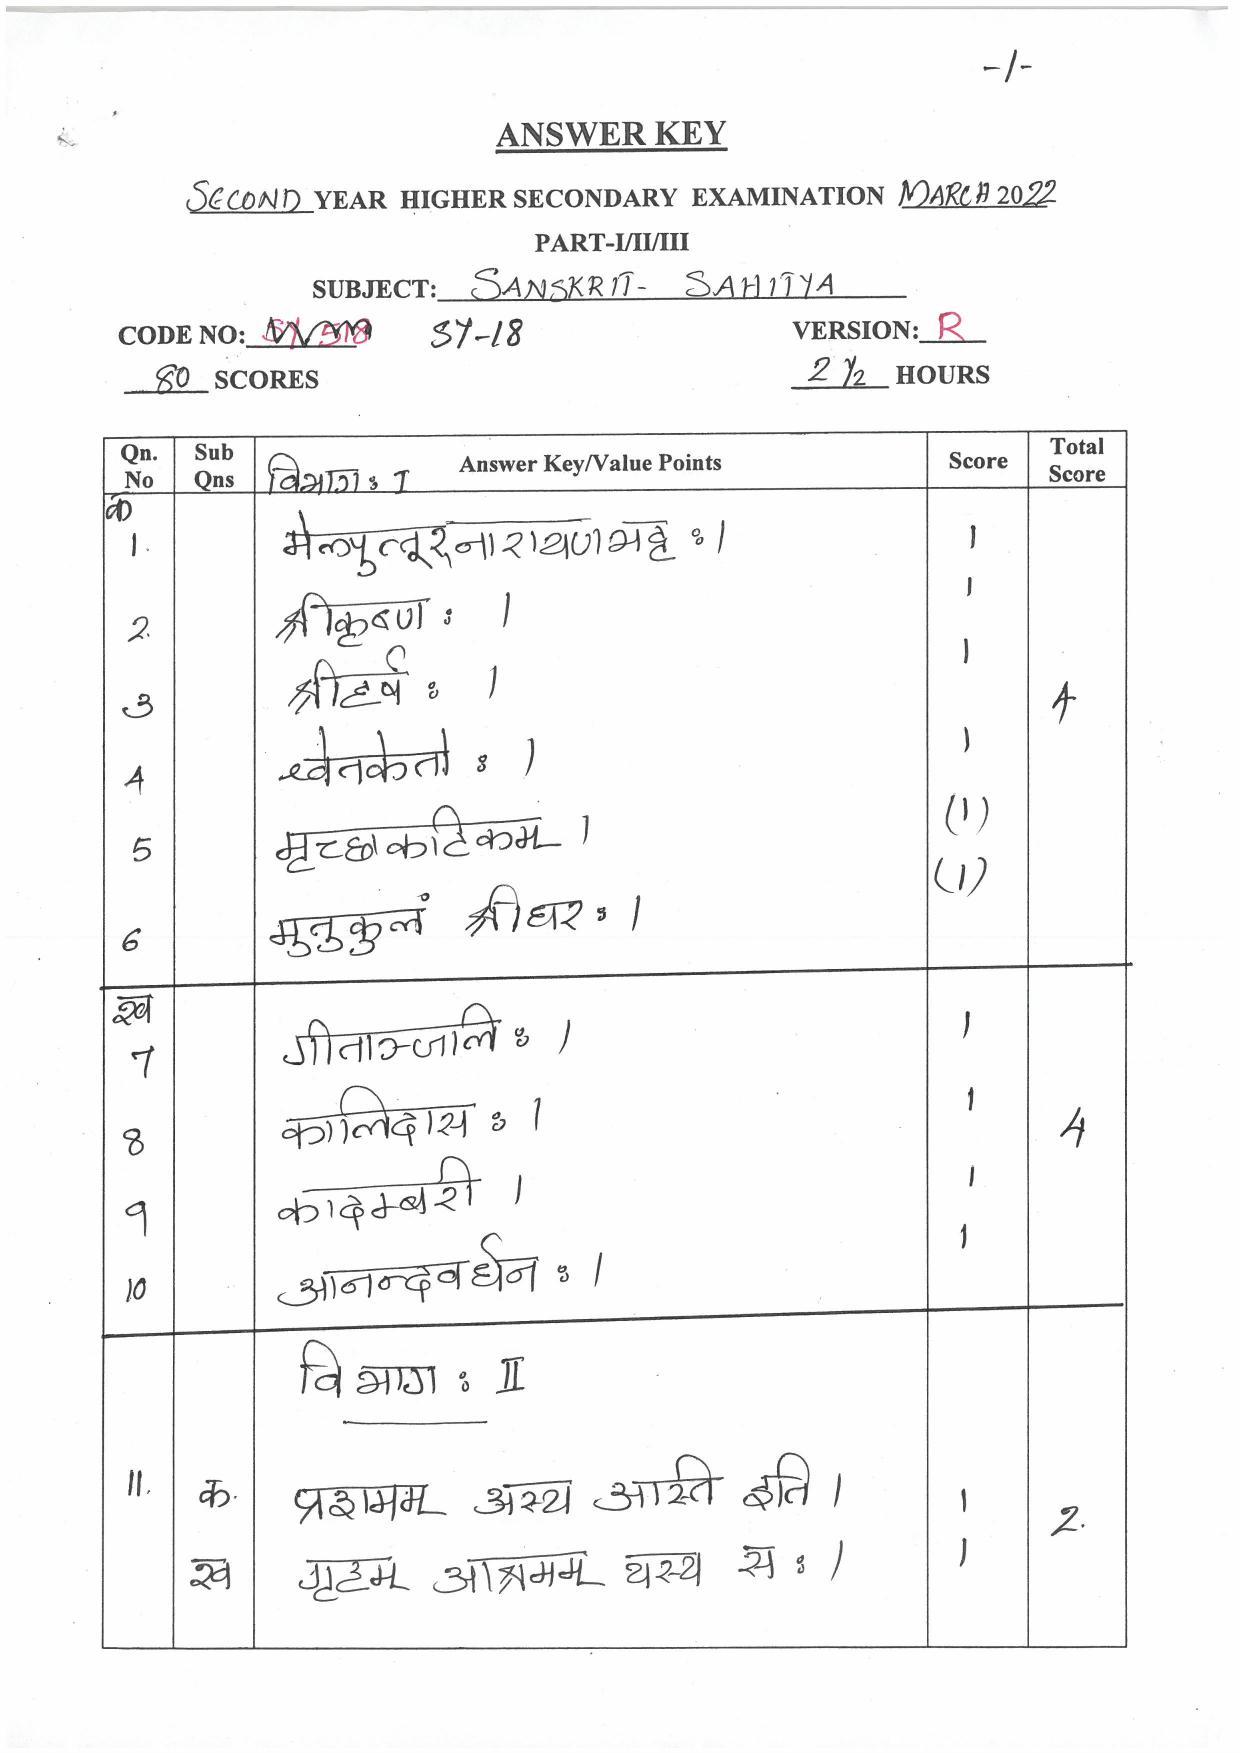 -1-
ANSWER KEY
SECOND YEAR HIGHER SECONDARY EXAMINATION MARCH 2022
PART-I/II/III
SUBJECT: SANSKRIT- SAHITYA
CODE NO: SY-18 VERSION: R
80 SCORES 2 1/2 HOURS
Qn. No Sub Qns विभागः I Answer Key/Value Points Score Total Score
क
1. मेल्पुत्तूर्नारायणभट्टः। 1
2. श्रीकृष्णः। 1
3 श्रीहर्षः। 1 4
4 श्वेतकेतोः। 1
5 मृच्छाकटिकम्। (1)
6 मुतुकुलं श्रीधरः। (1)
ख
7 गीताञ्जलिः। 1
8 कालिदासः। 1 4
9 कादम्बरी। 1
10 आनन्दवर्धनः। 1
विभागः II
11. क. प्रशमम् अस्य अस्ति इति। 1 2.
ख गृहम् आश्रमम् यस्य सः। 1